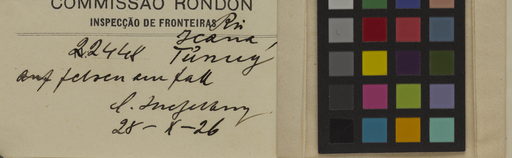 COMMISSÃO RONDON
INSPECÇÃO DE FRONTEIRAS
Rio
Icana,
22448 Tunuy
auf felsen am fall
28-X-26